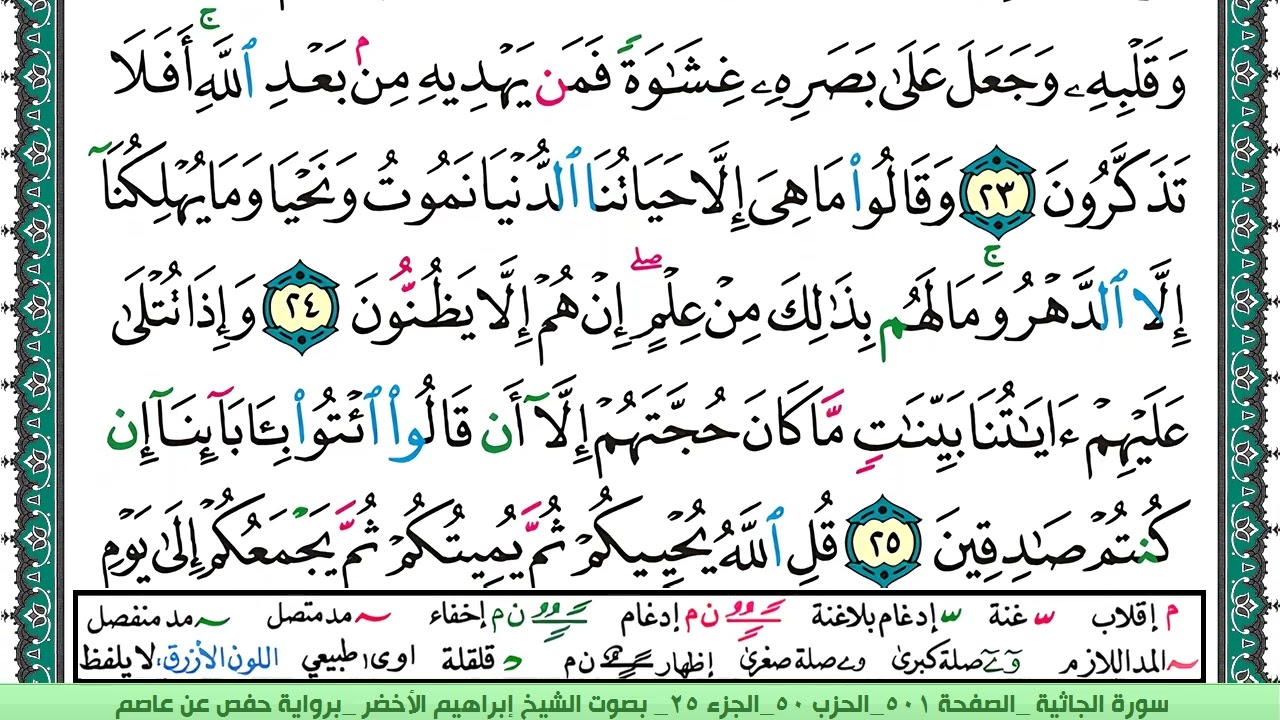 وَقَلْبِهِۦ وَجَعَلَ عَلَىٰ بَصَرِهِۦ غِشَٰوَةً فَمَن يَهْدِيهِ مِنۢ بَعْدِ ٱللَّهِ ۚ أَفَلَا
تَذَكَّرُونَ ٢٣ وَقَالُوا۟ مَا هِىَ إِلَّا حَيَاتُنَا ٱلدُّنْيَا نَمُوتُ وَنَحْيَا وَمَا يُهْلِكُنَآ
إِلَّا ٱلدَّهْرُ ۚ وَمَا لَهُم بِذَٰلِكَ مِنْ عِلْمٍ ۖ إِنْ هُمْ إِلَّا يَظُنُّونَ ٢٤ وَإِذَا تُتْلَىٰ
عَلَيْهِمْ ءَايَٰتُنَا بَيِّنَٰتٍ مَّا كَانَ حُجَّتَهُمْ إِلَّآ أَن قَالُوا۟ ٱئْتُوا۟ بِـَٔابَآئِنَآ إِن
كُنتُمْ صَٰدِقِينَ ٢٥ قُلِ ٱللَّهُ يُحْيِيكُمْ ثُمَّ يُمِيتُكُمْ ثُمَّ يَجْمَعُكُمْ إِلَىٰ يَوْمِ
م إقلاب غنة إدغام بلاغنة ن م إدغام ن م إخفاء مد متصل مد منفصل
المد اللازم صلة كبرى و ے صلة صغرى إظهار ن م قلقلة اوى طبيعي اللون الأزرق: لا يلفظ
سورة الجاثية _الصفحة ٥٠١_الحزب ٥٠_الجزء ٢٥_ بصوت الشيخ إبراهيم الأخضر _برواية حفص عن عاصم